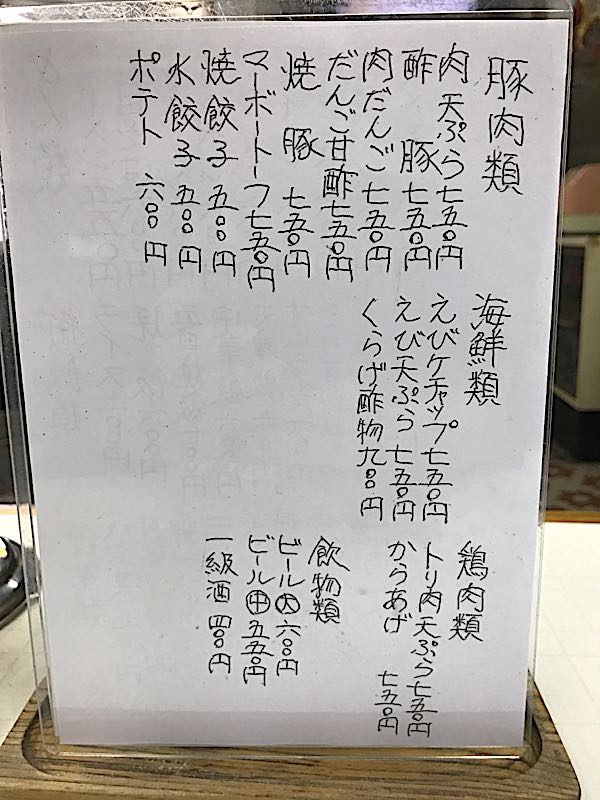 豚肉類
肉天ぷら七五〇円
酢豚七五〇円
肉だんご七五〇円
だんご甘酢七五〇円
焼豚七五〇円
マーボートーフ七五〇円
焼餃子五〇〇円
水餃子五〇〇円
ポテト六〇〇円
海鮮類
えびケチャップ七五〇円
えび天ぷら七五〇円
くらげ酢物九〇〇円
鶏肉類
トリ肉天ぷら七五〇円
からあげ七五〇円
飲物類
ビール㊅六〇〇円
ビール㊥五五〇円
一級酒四〇〇円